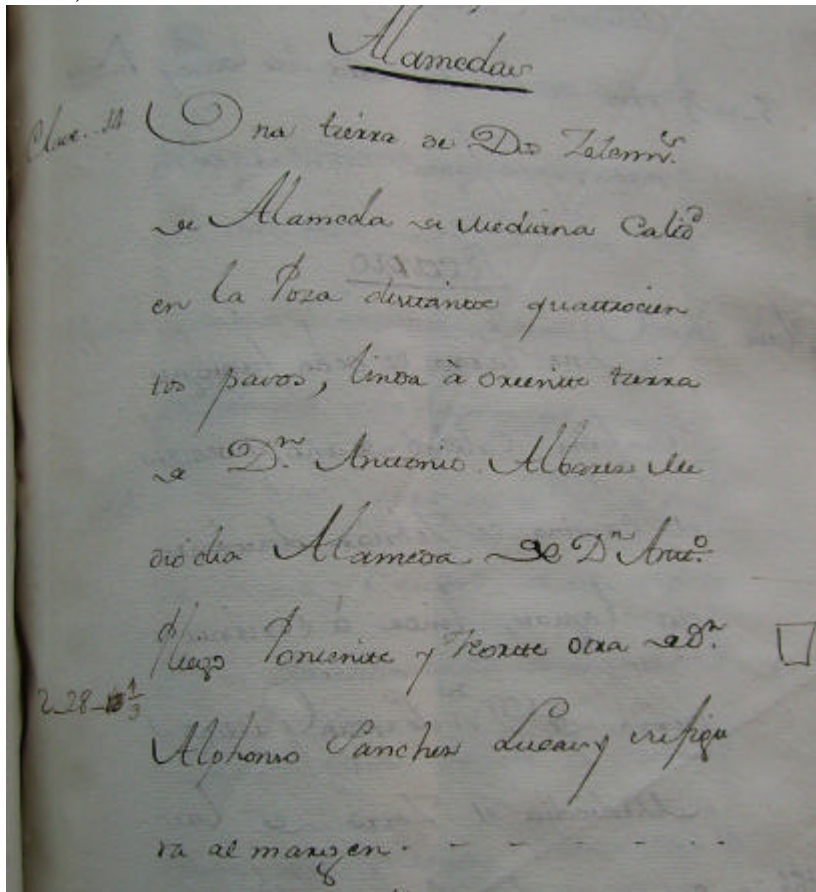 Alamedas
Clase. 11 Una tierra de Dos Zelemn.s
de Alameda de mediana Calid.d
en la Poza distante quattrocien
tos pasos, linda à oriente tierra
de D.n Antonio Albares Me
dio dia Alameda de D.n Ant.o
Poniente y Norte otra de D.n
2_28_ 1/3
Alphonso Sanchez y su figu
ra al margen. - - - - -